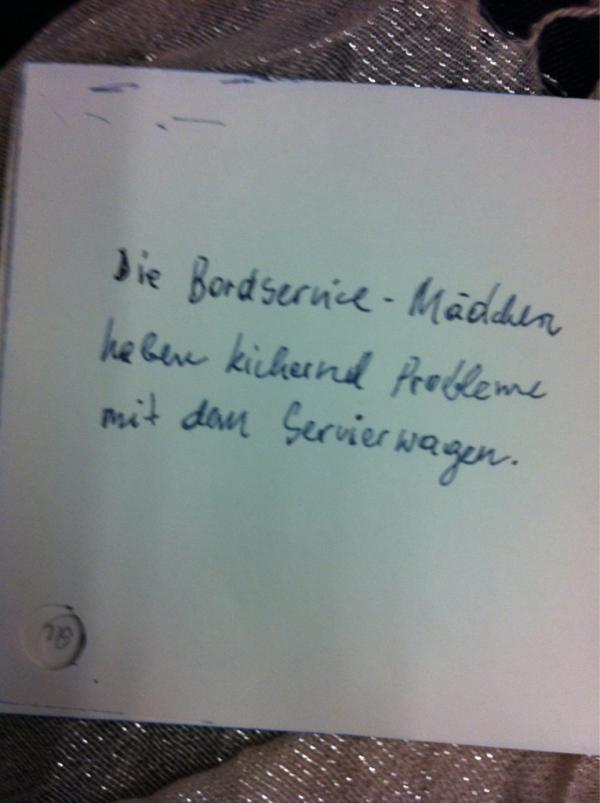 Die Bordservice-Mädchen
haben kichernd Probleme
mit dem Servierwagen.